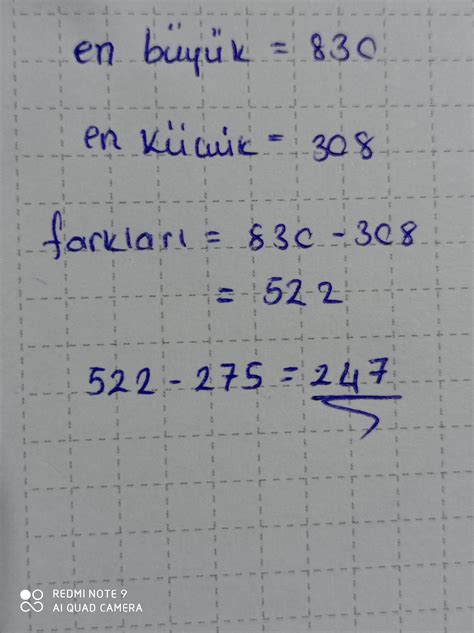 en büyük = 830
en küçük = 308
farkları = 830 - 308
= 522
522 - 275 = 247
REDMI NOTE 9
AI QUAD CAMERA